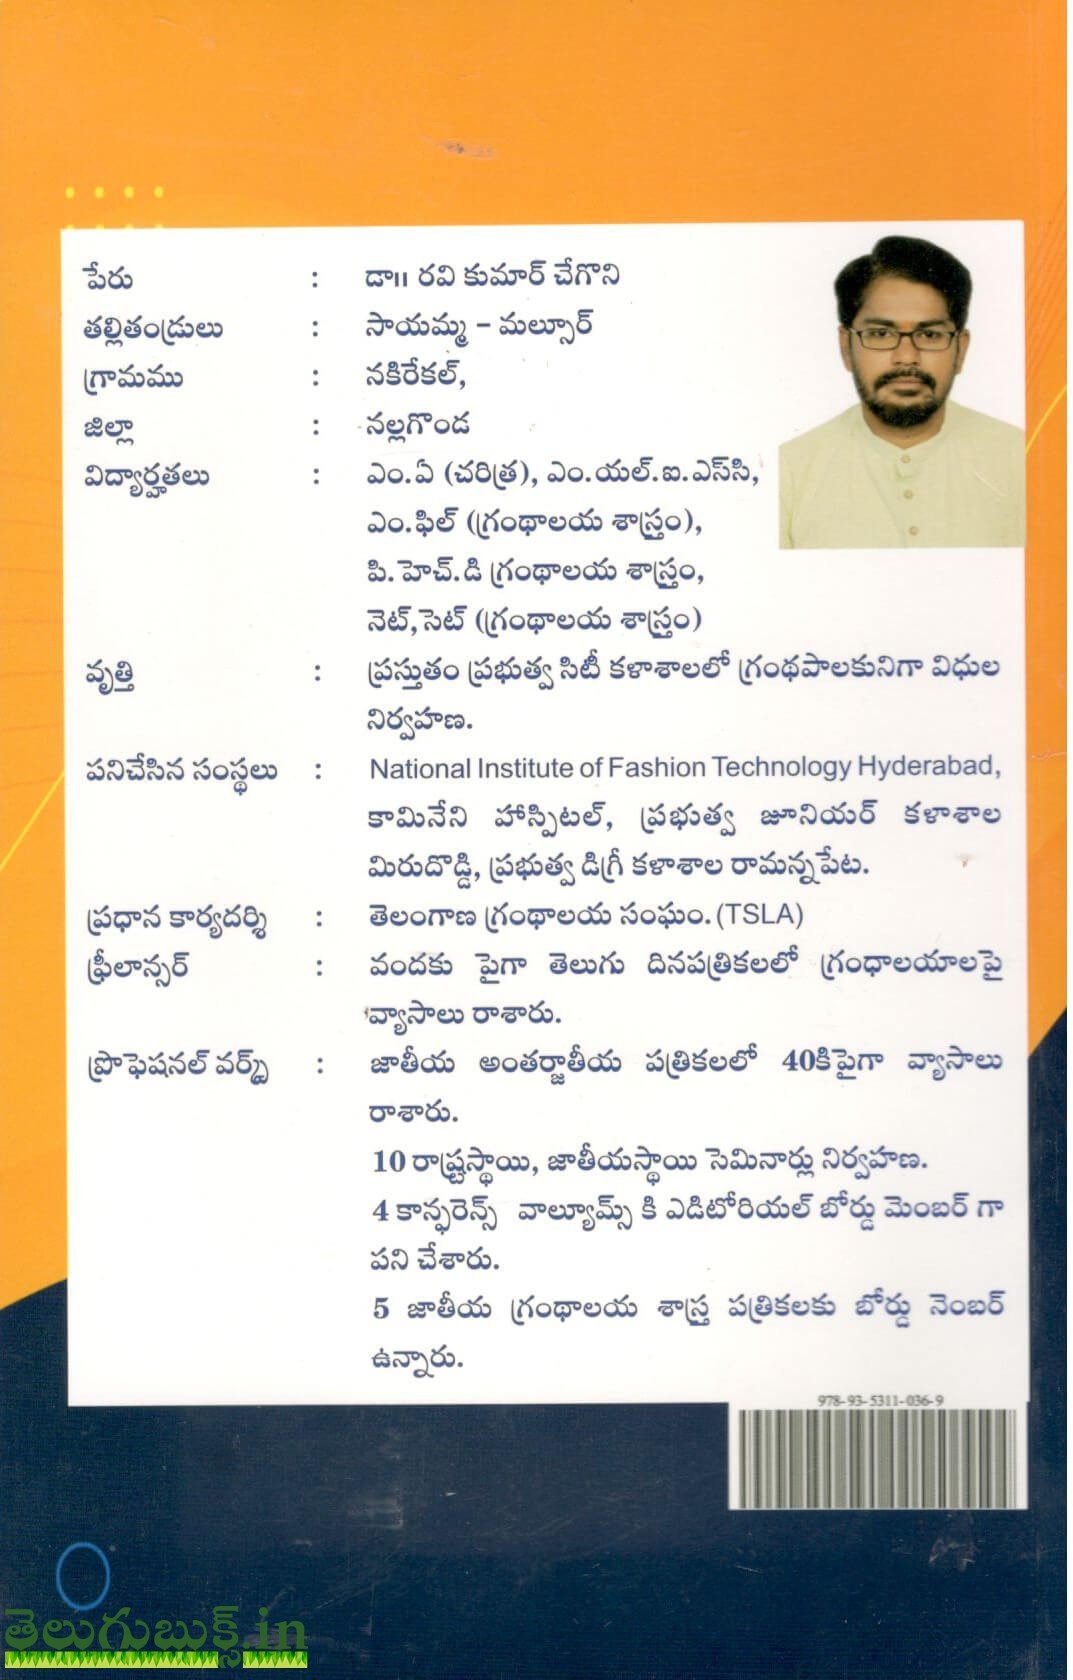 పేరు : డా॥ రవి కుమార్ చేగొని
తల్లితండ్రులు : సాయమ్మ - మల్సూర్
గ్రామము : నకిరేకల్,
జిల్లా : నల్లగొండ
విద్యార్హతలు : ఎం.ఏ (చరిత్ర), ఎం.యల్.ఐ.ఎస్‌సి,
ఎం.ఫిల్ (గ్రంథాలయ శాస్త్రం),
పి.హెచ్.డి గ్రంథాలయ శాస్త్రం,
నెట్,సెట్ (గ్రంథాలయ శాస్త్రం)
వృత్తి : ప్రస్తుతం ప్రభుత్వ సిటీ కళాశాలలో గ్రంథపాలకునిగా విధుల
నిర్వహణ.
పనిచేసిన సంస్థలు : National Institute of Fashion Technology Hyderabad,
కామినేని హాస్పిటల్, ప్రభుత్వ జూనియర్ కళాశాల
మిరుదొడ్డి, ప్రభుత్వ డిగ్రీ కళాశాల రామన్నపేట.
ప్రధాన కార్యదర్శి : తెలంగాణ గ్రంథాలయ సంఘం. (TSLA)
ఫ్రీలాన్సర్ : వందకు పైగా తెలుగు దినపత్రికలలో గ్రంధాలయాలపై
వ్యాసాలు రాశారు.
ప్రొఫెషనల్ వర్క్స్ : జాతీయ అంతర్జాతీయ పత్రికలలో 40కిపైగా వ్యాసాలు
రాశారు.
10 రాష్ట్రస్థాయి, జాతీయస్థాయి సెమినార్లు నిర్వహణ.
4 కాన్ఫరెన్స్ వాల్యూమ్స్ కి ఎడిటోరియల్ బోర్డు మెంబర్ గా
పని చేశారు.
5 జాతీయ గ్రంథాలయ శాస్త్ర పత్రికలకు బోర్డు నెంబర్
ఉన్నారు.
978-93-5311-036-9
తెలుగుబుక్స్.in